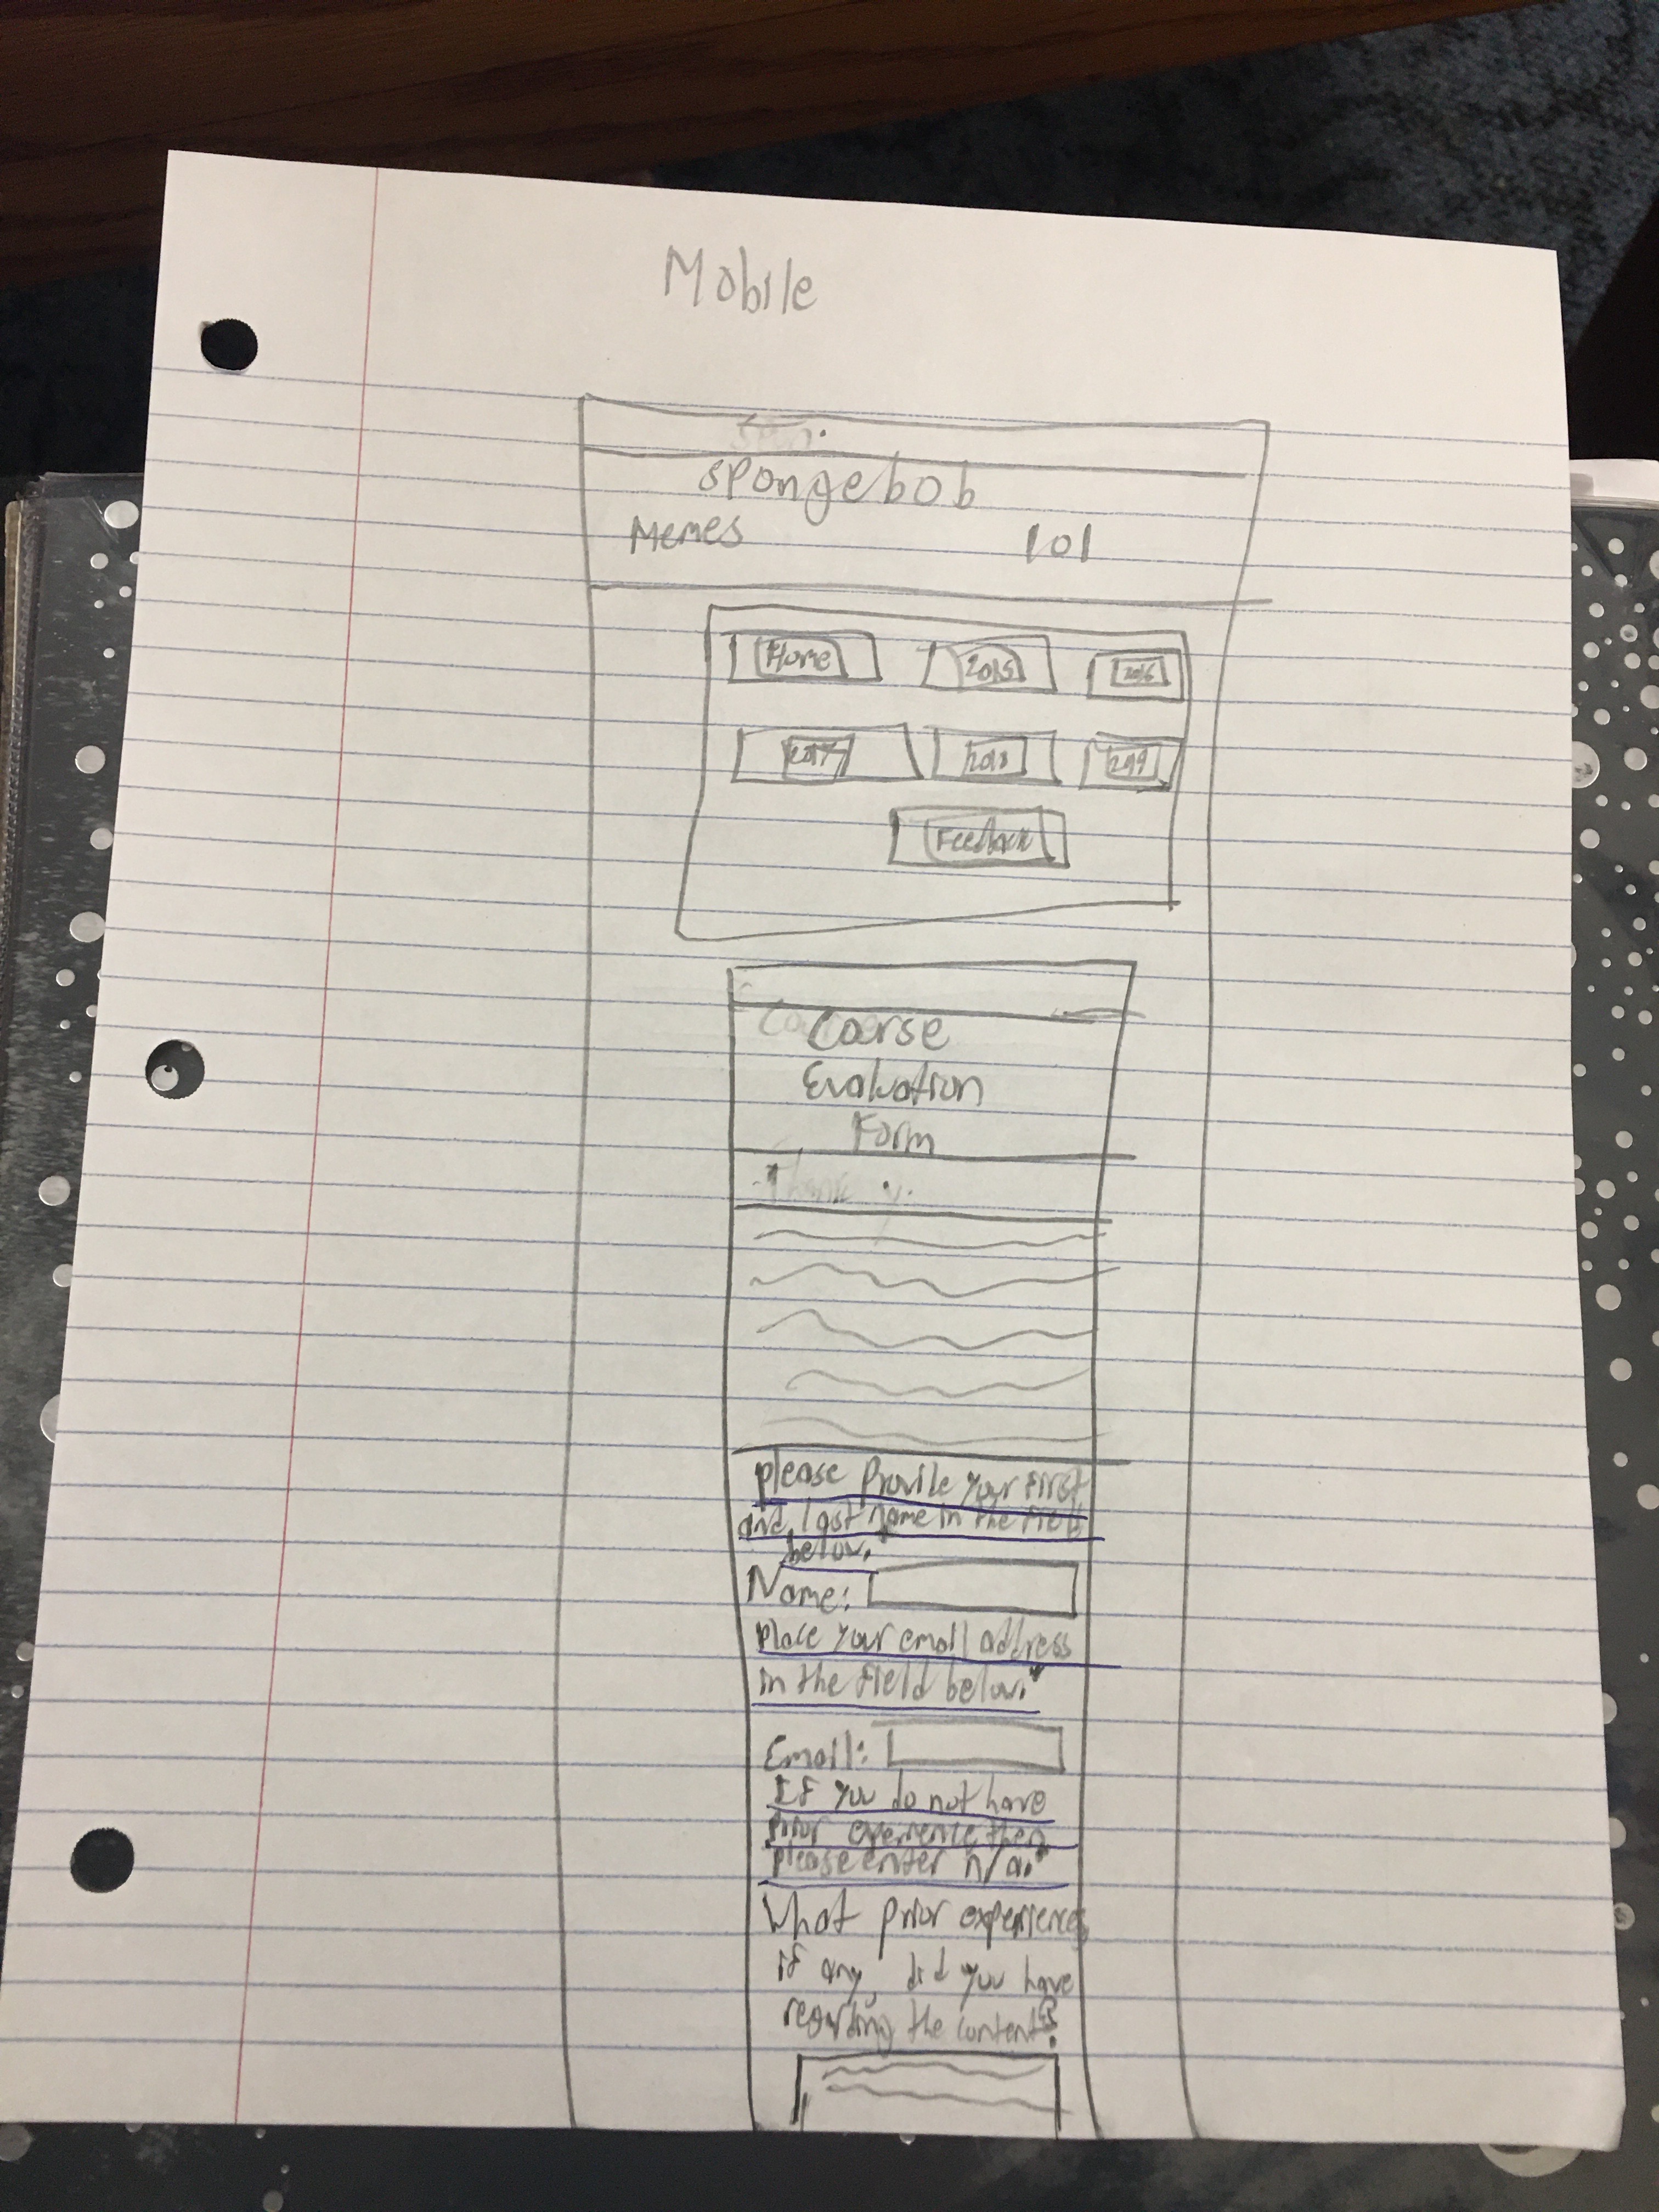 Mobile
spongebob
Memes 101
Home 2015 2016
2017 2018 2019
Feedback
Coarse
Evaluation
Form
Thank y
please Provile your first
and last name in the field
below.*
Name:
place your email address
in the field below.*
Email:
If you do not have
Prior experience then
please enter n/a.*
What prior experience,
if any, did you have
regarding the content?